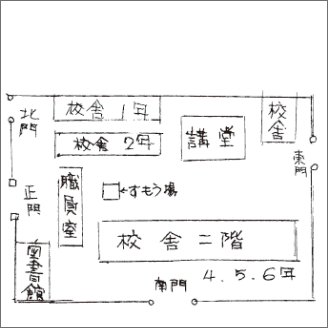 北門
校舎 1年
校舎
校舎 2年
講堂
東門
正門
職員室
←すもう場
校舎二階
図書館
南門
4.5.6年